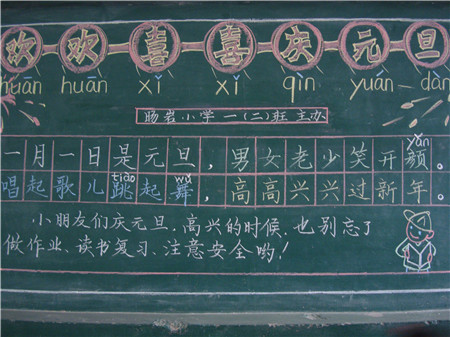 欢欢喜喜庆元旦
huān huān xǐ xǐ qìn yuán dàn
肠岩小学一(二)班 主办
yán
一月一日是元旦，男女老少笑开颜。
tiào wǔ
唱起歌儿跳起舞，高高兴兴过新年。
小朋友们庆元旦，高兴的时候，也别忘了
做作业、读书复习、注意安全哟！